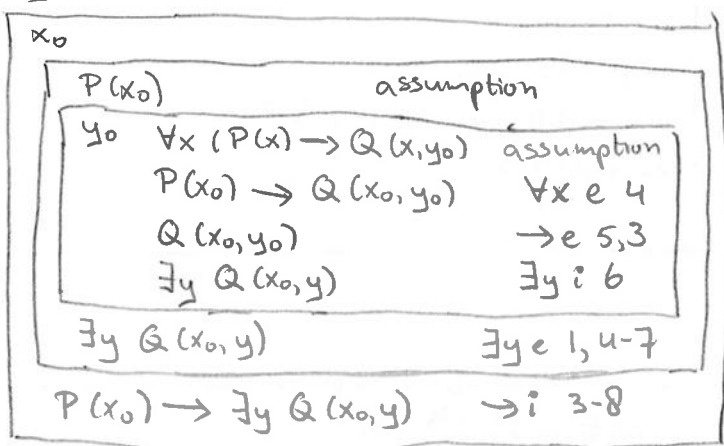 x₀
P(x₀) assumption
y₀ ∀x (P(x) → Q(x,y₀) assumption
P(x₀) → Q(x₀,y₀) ∀x e 4
Q(x₀,y₀) →e 5,3
∃y Q(x₀,y) ∃y i 6
∃y Q(x₀,y) ∃y e 1, 4-7
P(x₀) → ∃y Q(x₀,y) →i 3-8